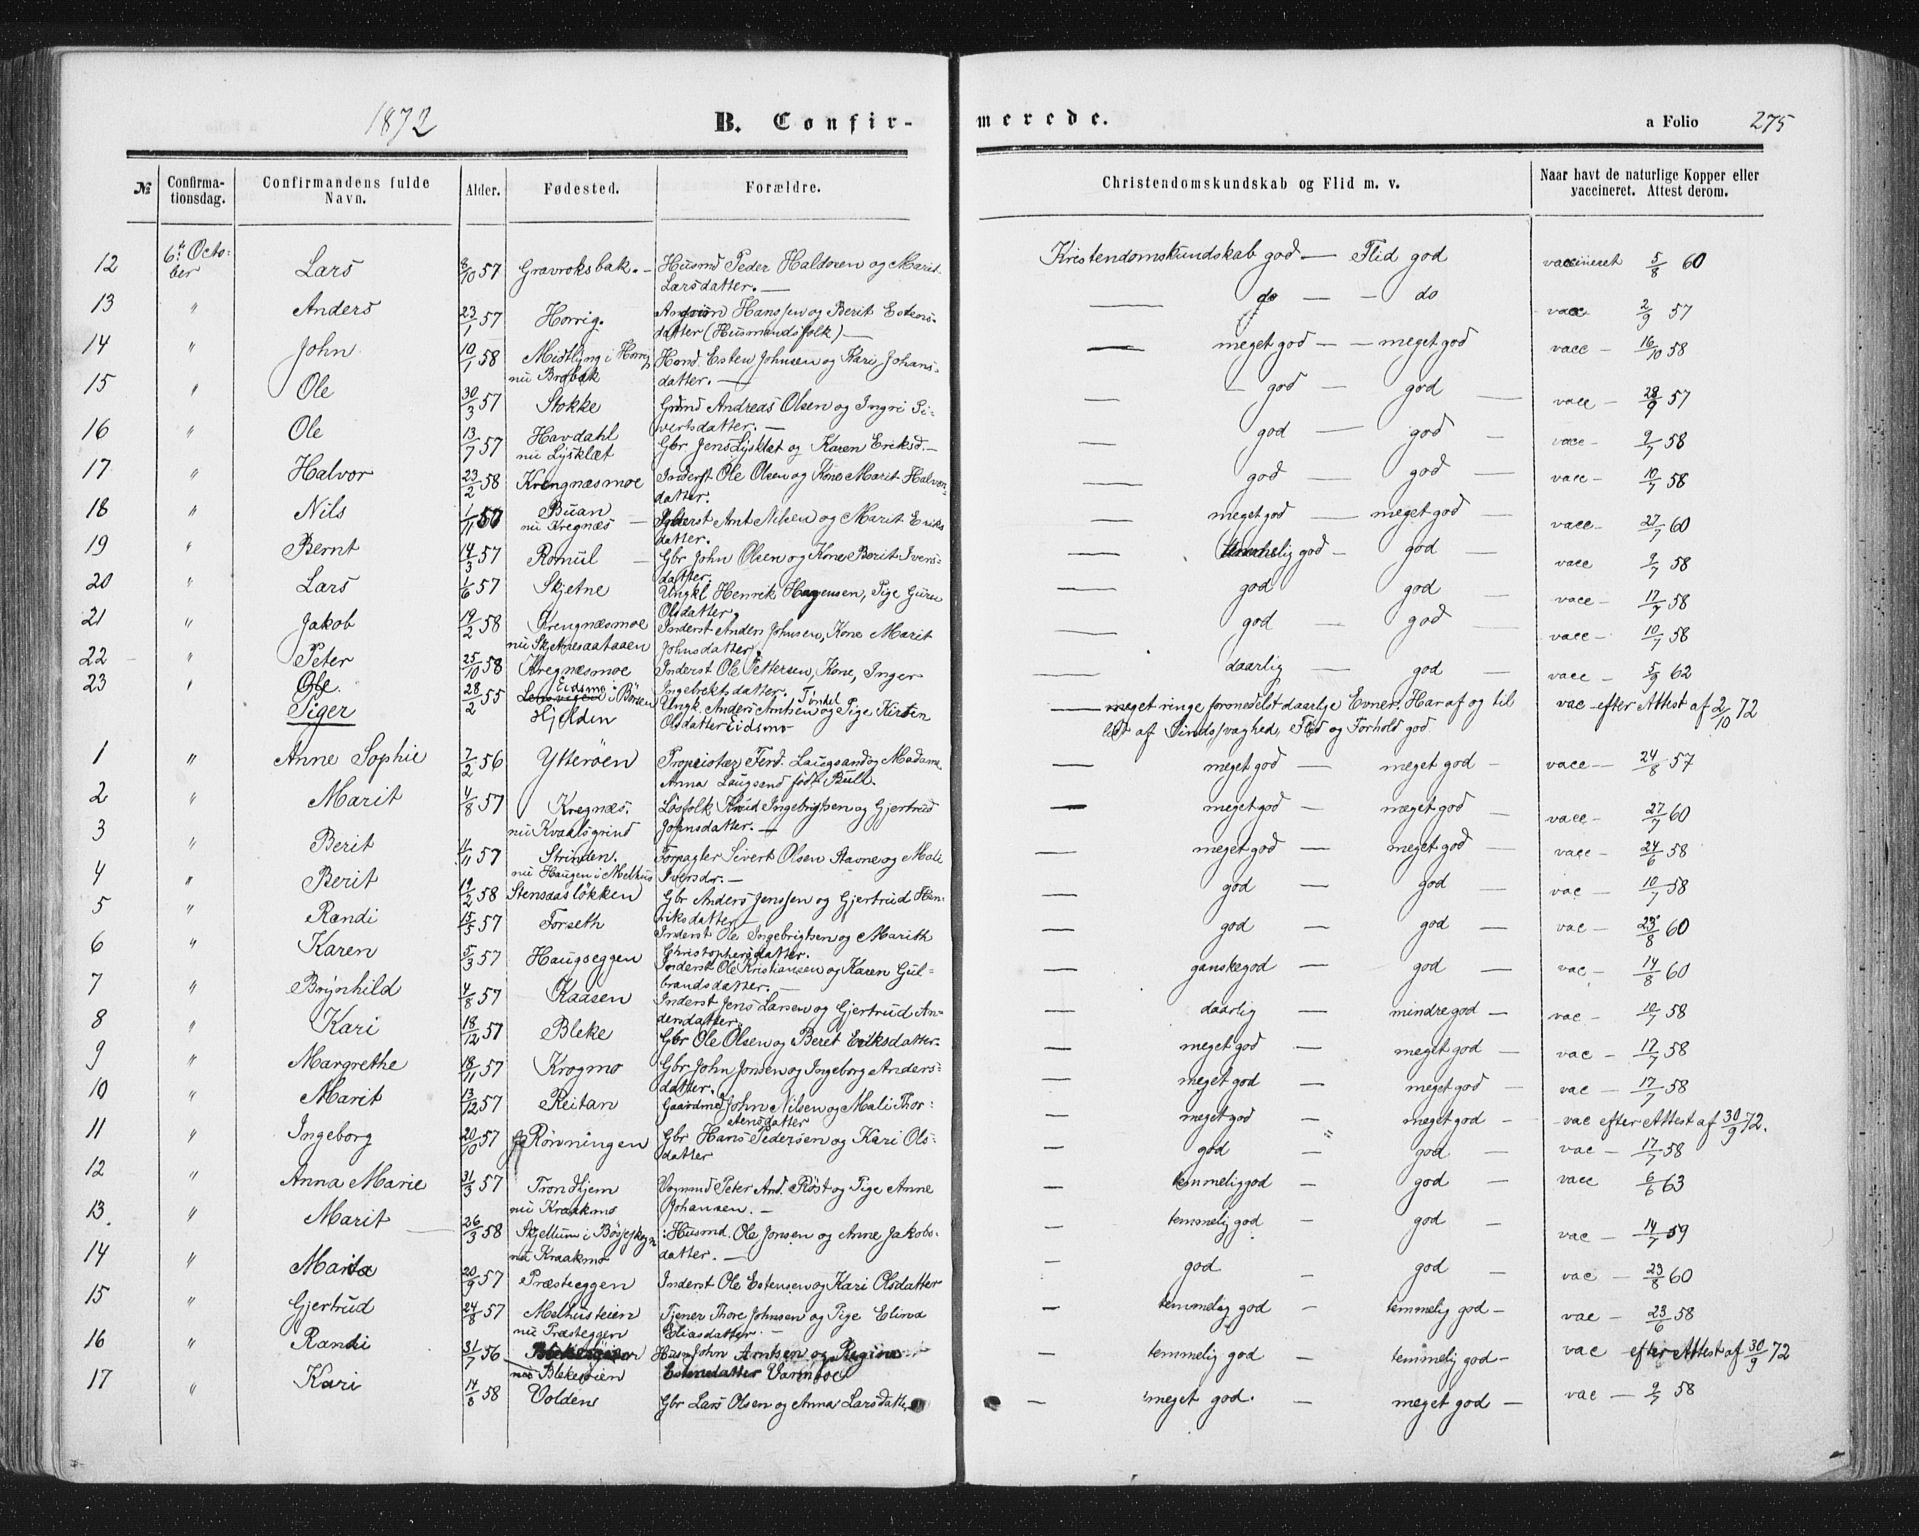 1872 B. Confir- merede. a Folio 275
№ Confirmationsdag. Confirmandens fulde Navn. Alder. Fødested. Forældre. Christendomskundskab og Flid m. v. Naar havt de naturlige Kopper eller vaccineret. Attest derom.
12 6te October Lars 8/10 57 Gravroksbak. — Husmd Peder Haldosen og Marit Larsdatter. — Kristendomskundskab god — Flid god vaccineret 5/8 60
13 " Anders 23/1 57 Horrig. Hanssen og Berit Estensdatter (Husmandsfolk) — do — do vacc 2/9 57
14 " John 10/1 58 Midtlyng i Horrig nu Brubak Hmd. Esten Johnsen og Kari Johansdatter. — meget god — meget god vacc — 16/10 58
15 " Ole 30/3 57 Stokke Gmd Andreas Olsen og Ingri Sivertsdatter. — god — god vacc — 28/9 57
16 " Ole 13/7 57 Havdahl nu Lysklæt Gbr Jens Lysklæt og Karen Eriksd. — god — god vacc — 9/7 58
17 " Halvor 23/2 58 Krengnæsmoe Inderst Ole Olsen og Kone Marit Halvorsdatter. god — god vacc — 10/7 58
18 " Nils 1/11 Buan nu Kregnæs Inderst Arnt Nilsen og Marit Eriksdatter. meget god — meget god vacc — 27/7 60
19 " Bernt 14/3 57 Romul Gbr John Olsen og Kone Berit Iversdatter. temmelig god — god vacc 9/7 58
20 " Lars 1/6 57 Skjetne Ungkl Henrik Hagensen, Pige Guru Olsdatter. god — god vacc — 17/7 58
21 " Jakob 19/2 58 Krengnæsmoe nu Skjetnesaataaen Inderst Anders Johnsen, Kone Marit Johnsdatter. god — god vacc — 10/7 58
22 " Peter 25/10 58 Kregnæsmoe Inderst Ole Pettersen, Kone, Inger Ingebrektsdatter. daarlig — god vacc — 5/9 62
23 " Ole. 28/2 55 Eidsmo i Börsen Hjelden Ungk. Anders Arntsen og Pige Kirsten Olsdatter Eidsmo meget ringe formedelst daarlje Evner. Har af og til lidt af Sindssvaghed, Flid og Forhold god. vac efter Attest af 2/10 72
Piger
1 " Anne Sophie 7/2 56 Ytteröen Propeiotær Ferd. Laugsand og Madame Anna Laugsend födt Bull. meget god — meget god — vacc — 24/8 57
2 " Marit 4/8 57 Kregnæs. nu Kvaalsgrind Løsfolk Knud Ingebrigtsen og Gjertrud Johnsdatter. — meget god — meget god vacc — 27/7 60
3 " Berit 11/11 57 Strinden. nu Haugen i Melhus Forpagter Sivert Olsen Stavne og Mali Iversdr. — meget god — meget god — vacc — 24/6 58
4 " Berit 19/2 58 Stensaasløkken Gbr Anders Jenssen og Gjertrud Henriksdatter — god — god — vac — 10/7 58
5 " Randi 15/5 57 Forseth Inderst Ole Ingebrigtsen og Marith Christophersdatter. god — god — vac — 23/8 60
6 " Karen 5/3 57 Haugseggen Inderst Ole Kristiansen og Karen Gulbrandsdatter. — ganske god — god — vac — 14/8 60
7 " Brynhild 4/8 57 Kaasen Inderst Jens Larsen og Gjertrud Andersdatter. daarlig — mindre god — vac — 10/7 58
8 " Kari 18/12 57 Bleke Gbr Ole Olsen og Beret Eriksdatter. meget god — meget god — vac — 17/7 58
9 " Margrethe 18/11 57 Krogmo Gbr John Jonsen og Ingeborg Andersdatter. meget god — meget god — vac — 17/7 58
10 " Marit 13/12 57 Reitan Gaardmd John Nilsen og Mali Thorstensdatter meget god — meget god — vac efter Attest af 30/9 72.
11 " Ingeborg 20/10 57 Rønningen Gbr Hans Pedersen og Kari Olsdatter god " god — vac — 17/7 58
12 " Anna Marie 31/3 57 Trondhjem nu Kraakmo Peter And. Röst og Pige Anne Johansen. — temmelig god — god — vacc 6/6 63
13. " Marit 26/3 58 Skjellum i Kraakmo Husmd. Ole Jonsen og Anne Jakobsdatter. — temmelig god — god — vac — 14/7 59
14 " Marita 20/9 57 Præsteggen Inderst Ole Estensen og Kari Olsdatter god — god — vac — 23/8 60
15 " Gjertrud 24/8 57 Melhusteien nu Præsteggen Tjener Thore Johnsen og Pige Elina Eliasdatter. — temmelig god — temmelig god — vac — 23/6 58
16 " Randi 31/7 56 nu Blekesöien Husm John Arntsen og Regina Estensdatter temmelig god — temmelig god — vac efter Attest af 30/9 72
17 " Kari 14/3 58 Volden Gbr Lars Olsen og Anna Larsdatter meget god. — meget god — vac — 9/7 58